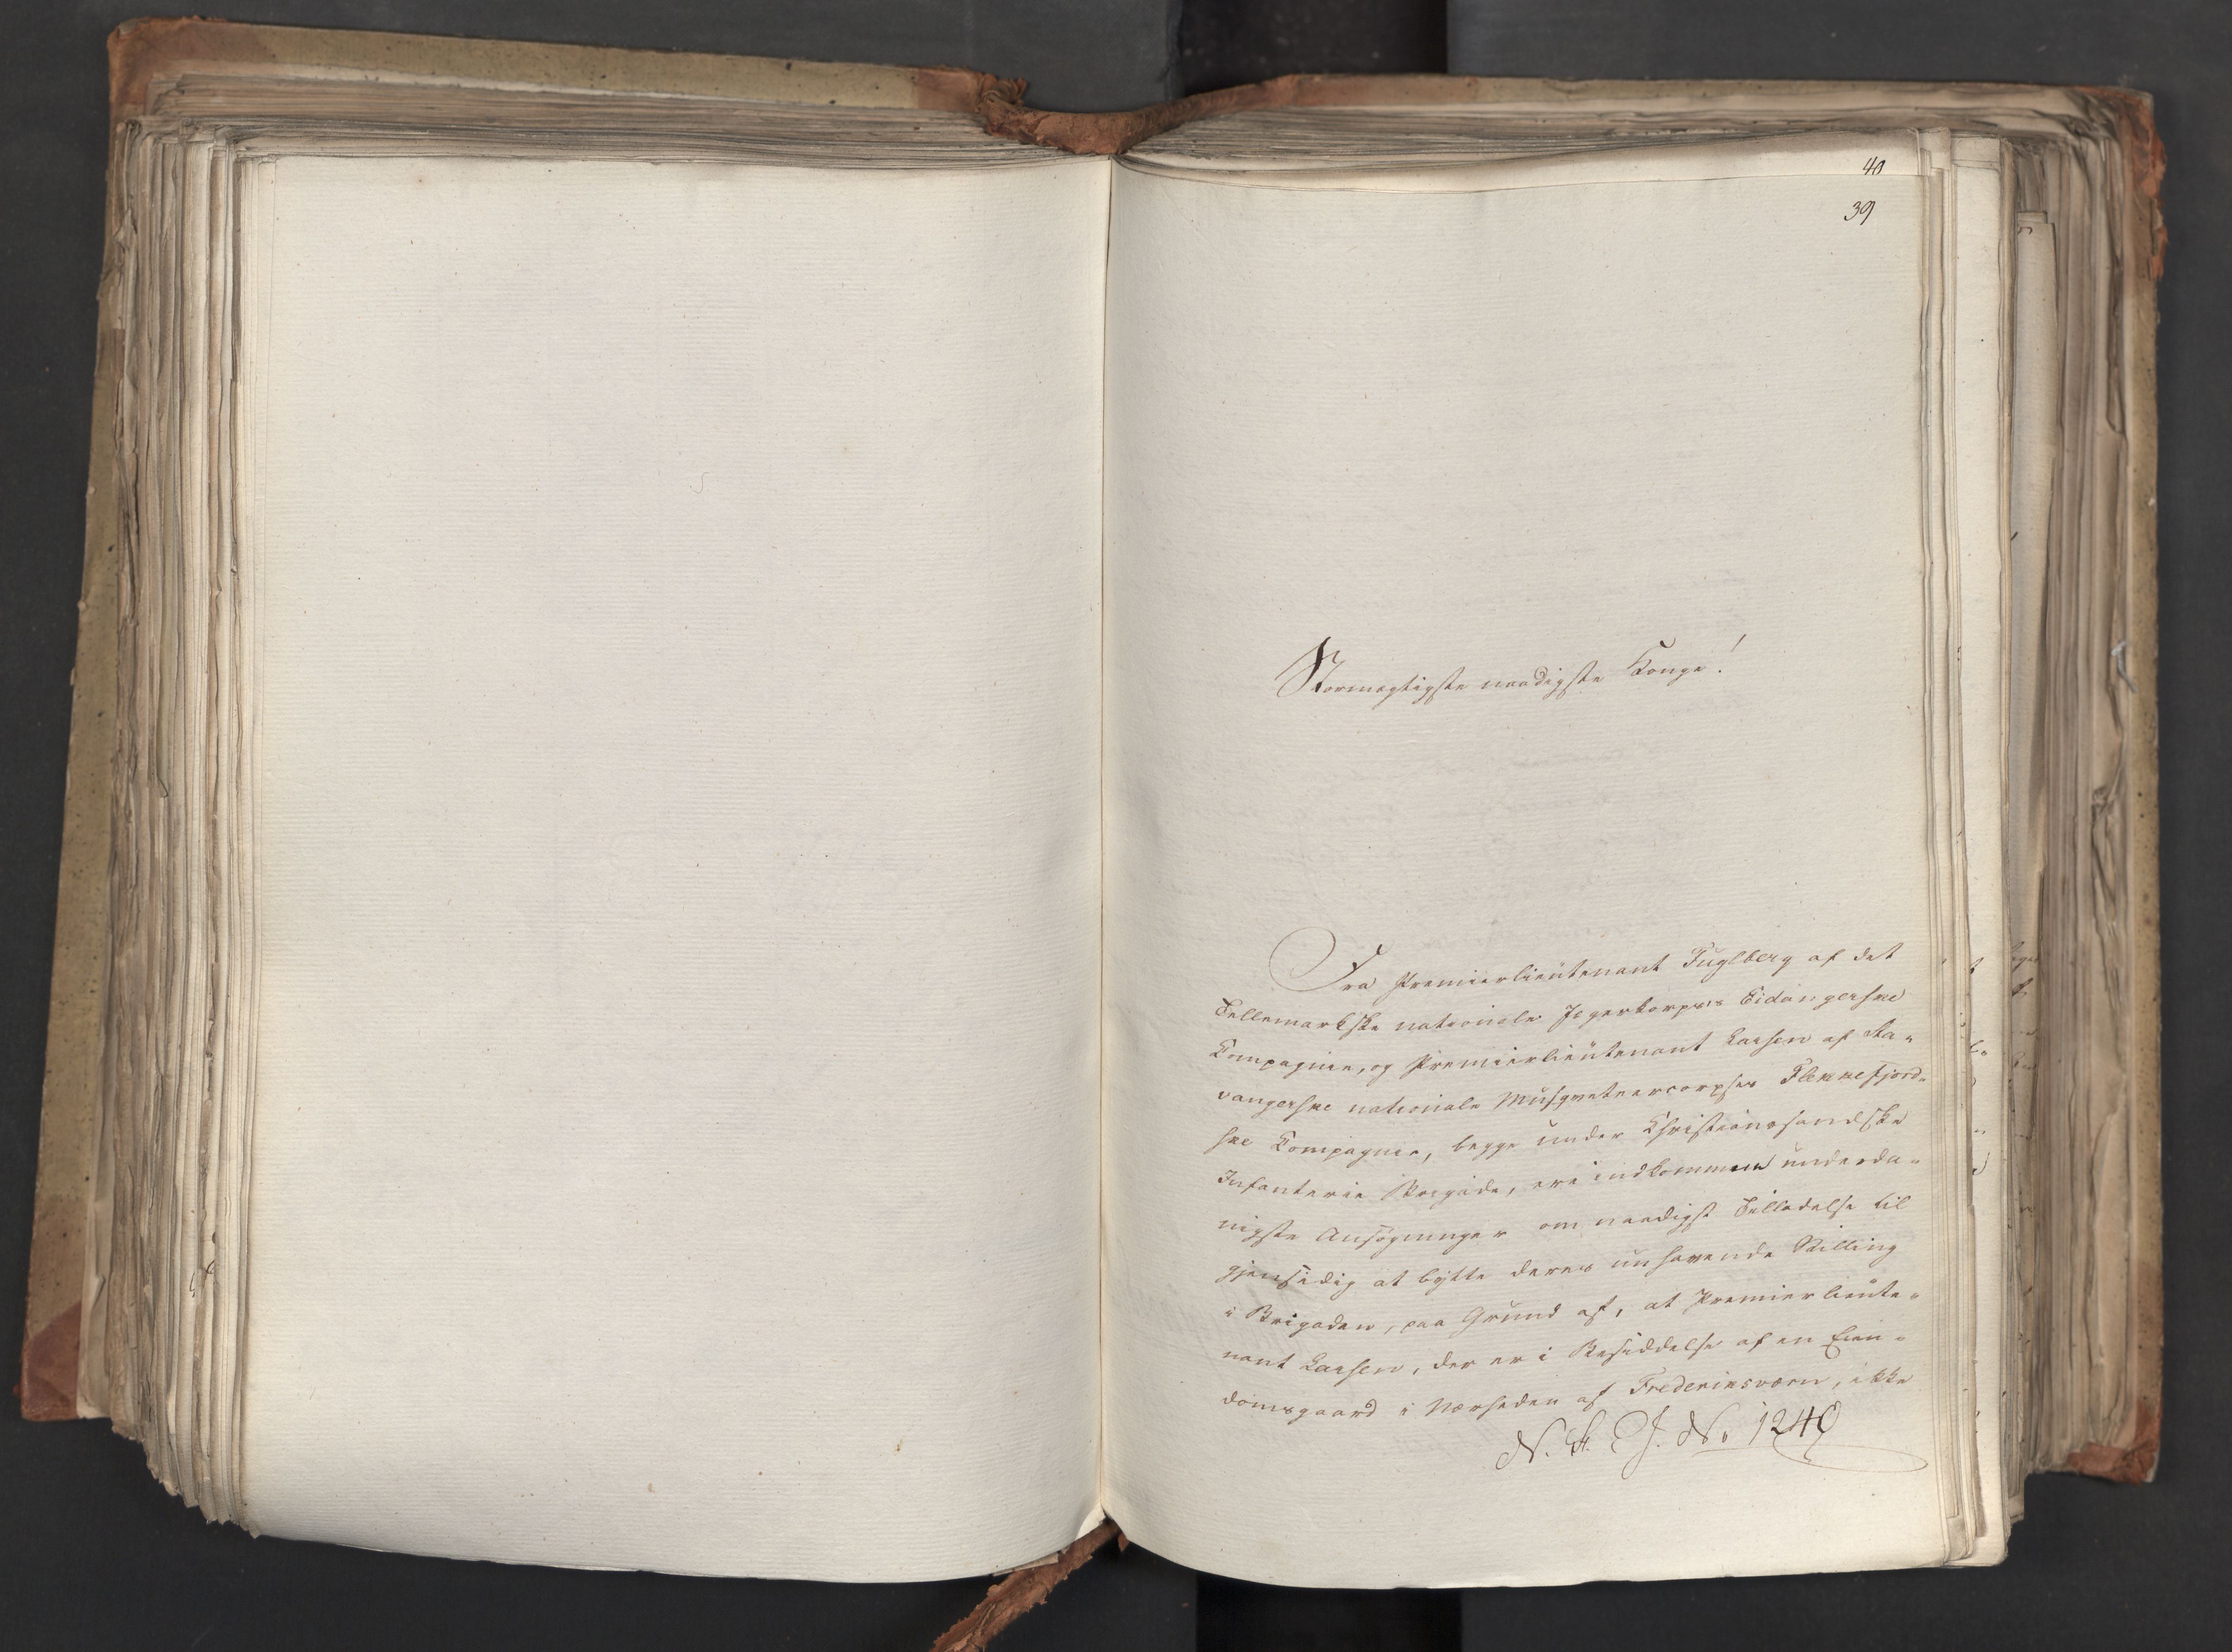 40
39
Stormægtigste naadigste Konge!
Fra Premierlieutenant Fuglberg af det
Tellemarkske nationale Jegerkorpses Eidangerske
Compagnie, og Premierlieutenant Larsen af Sta-
vangerske nationale Musqueteercorpses Flekkefjord-
ske Compagnie, begge under Christianssandske
Infanterie Brigade, ere indkommen underda-
nigste Ansøgninger om naadigst Tilladelse til
gjensidig at bytte deres nuhavende Stilling
i Brigaden, paa Grund af, at Premierlieute-
nant Larsen, der er i Besiddelse af en Eien-
domsgaard i Nærheden af Frederiksværn, ikke
N. A. J. No 1240